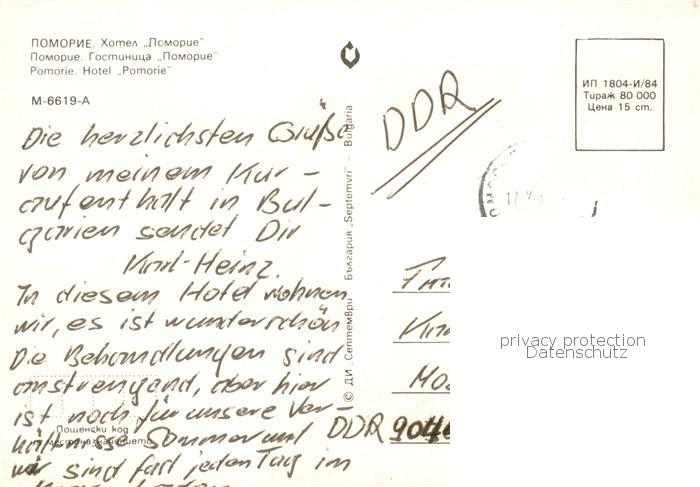 ПОМОРИЕ. Хотел „Поморие"
Поморие. Гостиница „Поморие"
Pomorie. Hotel „Pomorie"
М-6619-А
Die herzlichsten Grüße
von meinem Kur-
aufenthalt in Bul-
garien sendet Dir
Karl-Heinz.
In diesem Hotel wohnen
wir, es ist wunderschön
Die Behandlungen sind
anstrengend, aber hier
ist noch für unsere Ver-
hältnisse Sommer und
wir sind fast jeden Tag im
Пощенски код
на местоназначението
© ДИ „Септември" България „Septemvri" — Bulgaria
DDR
ИП 1804-И/84
Тираж 80 000
Цена 15 ст.
DDR 904
privacy protection
Datenschutz